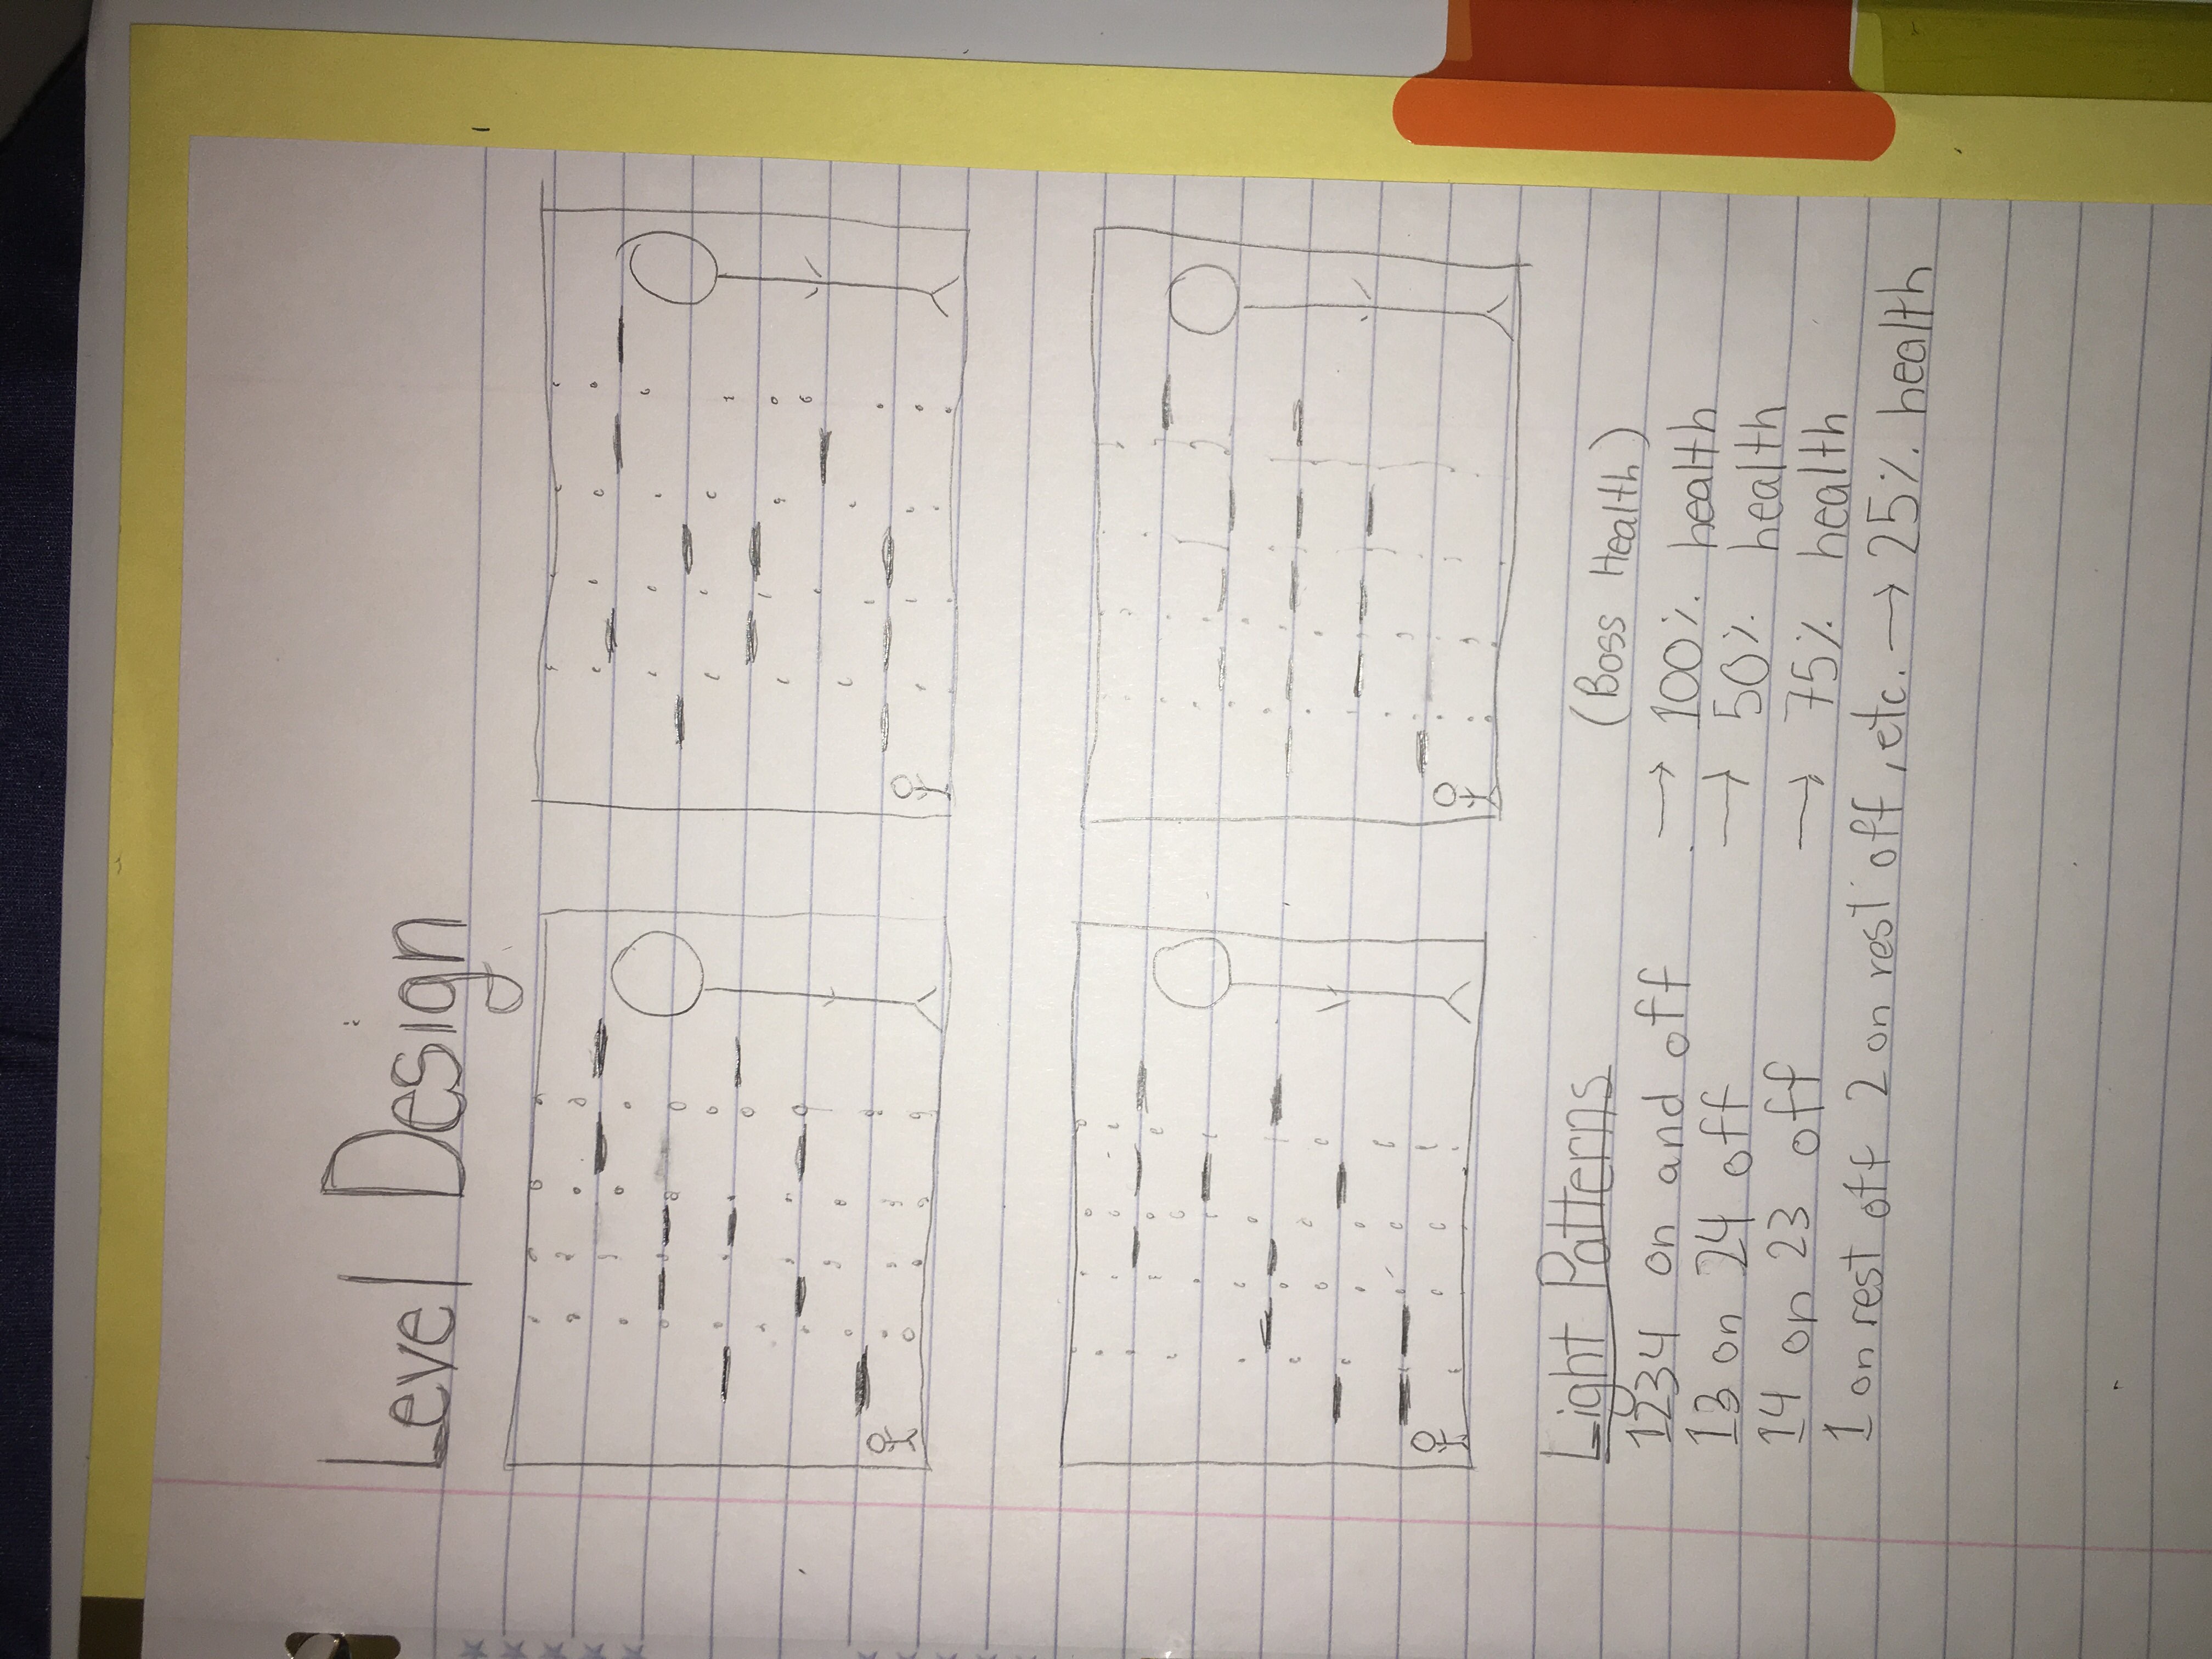 Level Design
Light Patterns (Boss Health)
1234 on and off → 100% health
13 on 24 off → 50% health
14 on 23 off → 75% health
1 on rest off 2 on rest off, etc. → 25% health